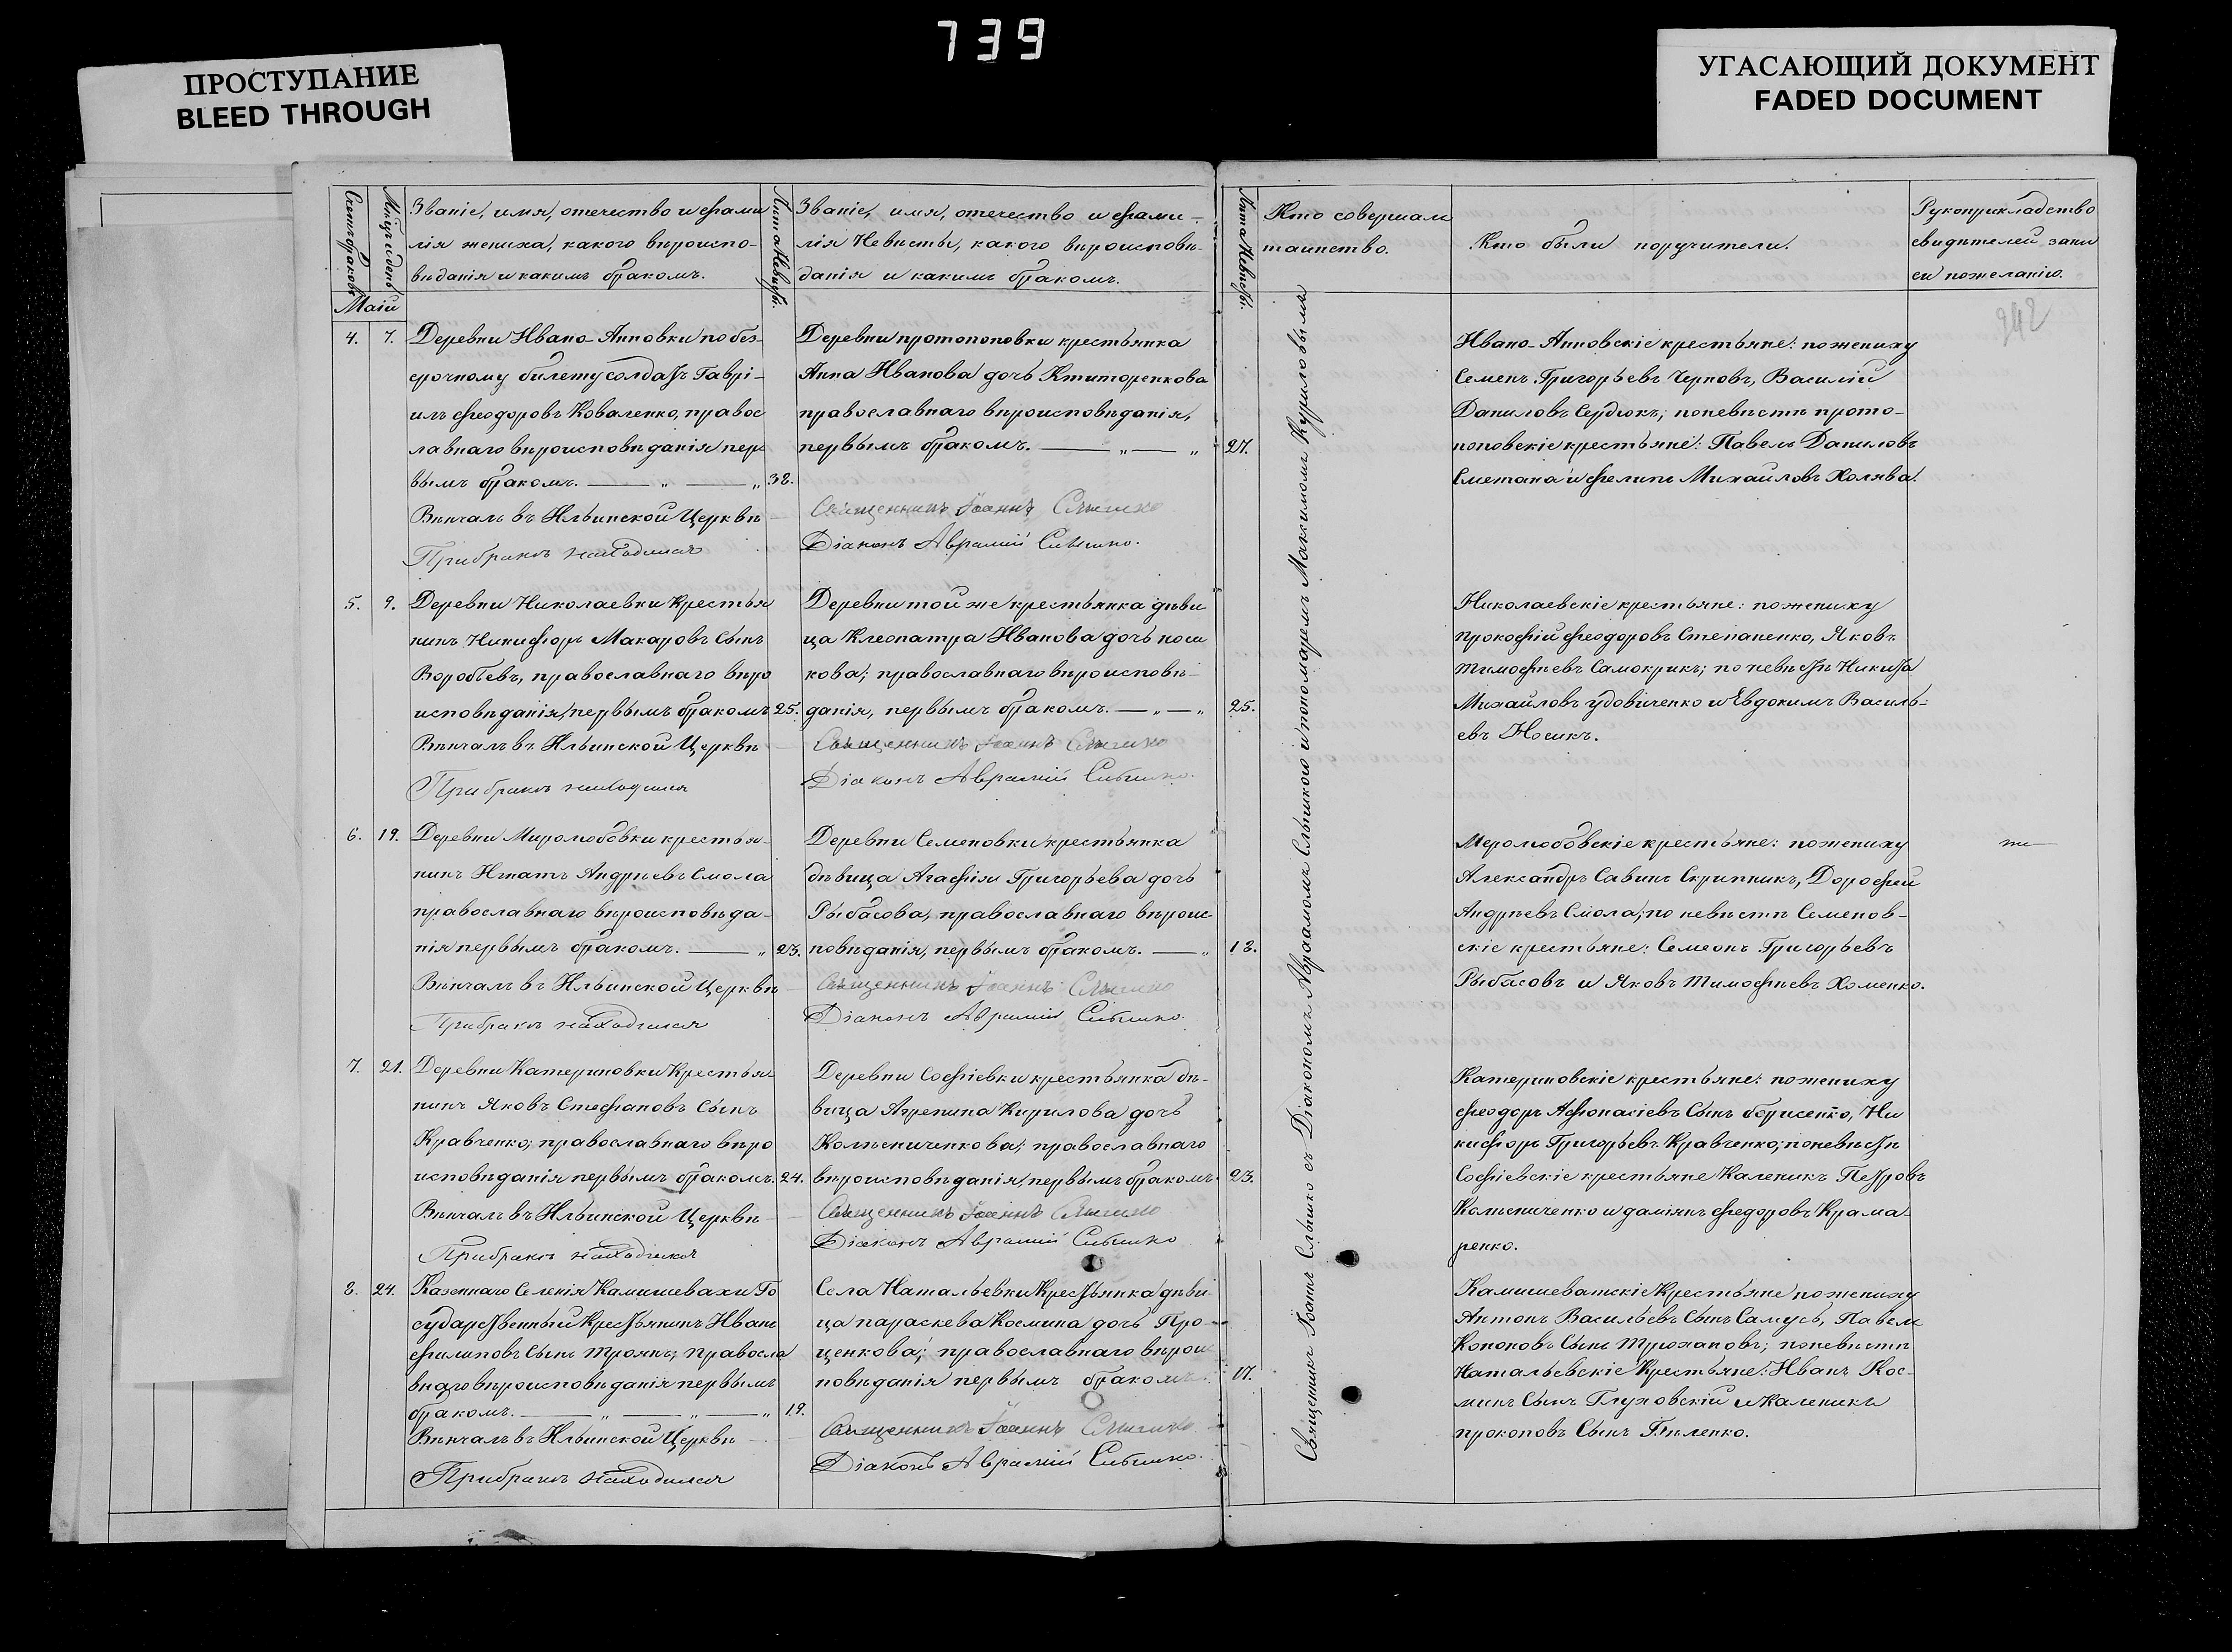 739
ПРОСТУПАНИЕ
BLEED THROUGH
УГАСАЮЩИЙ ДОКУМЕНТ
FADED DOCUMENT
Счетъ браковъ
Мѣсяцъ и день
Званіе, имя, отечество и фами
лія жениха, какого вѣроиспо-
вѣданія и какимъ бракомъ.
Званіе, имя, отечество и фами-
лія Невѣсты, какого вѣроисповѣ-
данія и какимъ бракомъ.
Лѣта Невѣсты.
Кто совершал
таинство.
Кто были поручители.
Рукоприкладство
свидѣтелей запи
си пожеланію.
Маій
242
4. 7. Деревни Ивано-Анновки по без-
срочному билету солдатъ Гаврі-
илъ Феодоровъ Коваленко, правос
лавнаго вѣроисповѣданія пер
вымъ бракомъ. 38.
Вѣнчалъ въ Ильинской Церквѣ
При бракѣ находился
Деревни протопоповки крестьянка
Анна Иванова дочь Ктиторенкова
православнаго вѣроисповѣданія,
первымъ бракомъ. 27.
Священникъ Іоаннъ Слышко
Діаконъ Аврамій Слышко.
Ивано-Анновскіе крестьяне: по жениху
Семенъ Григорьевъ Черновъ, Василій
Даниловъ Сердюкъ; по невѣстѣ прото-
поповскіе крестьяне: Павелъ Даниловъ
Сметана и Филипъ Михаиловъ Холява.
5. 9. Деревни Николаевки Крестья
нинъ Никифоръ Макаровъ Сынъ
Воробъевъ, православнаго вѣро
исповѣданія, первымъ бракомъ 25.
Вѣнчалъ въ Ильинской Церквѣ
При бракѣ находился
Деревни той же крестьянка дѣви
ца Клеопатра Иванова дочь носи
кова; православнаго вѣроисповѣ-
данія, первымъ бракомъ. 25.
Священникъ Іоаннъ Слышко
Діаконъ Аврамій Слышко.
Николаевскіе крестьяне: по жениху
Прокофій Феодоровъ Степаненко, Яковъ
Тимофѣевъ Самокрикъ; по невѣстѣ Никита
Михайловъ удовиченко и Евдокимъ Василь-
евъ Носикъ.
6. 19. Деревни Миролюбовки крестья-
нинъ Игнатъ Андрѣевъ Смола
православнаго вѣроисповѣда-
нія первымъ бракомъ. 23.
Вѣнчалъ въ Ильинской Церквѣ
При бракѣ находился
Деревни Семеновки крестьянка
дѣвица Агафія Григорьева дочь
Рыбасова, православнаго вѣроис-
повѣданія, первымъ бракомъ. 18.
Священникъ Іоаннъ Слышко
Діаконъ Аврамій Слышко.
Меролюбовскіе крестьяне: по жениху
Александръ Савинъ Скрипникъ, Дорофей
Андрѣевъ Смола; по невѣстѣ Семенов-
скіе крестьяне: Семеонъ Григорьевъ
Рыбасовъ и Яковъ Тимофѣевъ Хоменко.
7. 21. Деревни Катериновки Крестья-
нинъ Яковъ Стефановъ Сынъ
Кравченко; православнаго вѣро
исповѣданія первымъ бракомъ. 24.
Вѣнчалъ въ Ильинской Церквѣ
При бракѣ находился
Деревни Софіевки крестьянка дѣ-
вица Агрепина Кирилова дочь
Колѣсниченкова; православнаго
вѣроисповѣданія, первымъ бракомъ 23.
Священникъ Іоаннъ Слышко
Діаконъ Аврамій Слышко
Катериновскіе крестьяне: по жениху
Феодоръ Афонасіевъ Сынъ борисенко, Ни
кифоръ Григорьевъ Кравченко; по невѣстѣ
Софіевскіе крестьяне Каленикъ Петровъ
Колѣсниченко и даміянъ Федоровъ Крама-
ренко.
8. 24. Казеннаго Селенія Камишевахи Го
сударственный Крестьянинъ Иванъ
Филиповъ Сынъ Троянъ; Правосла
внаго вѣроисповѣданія первымъ
бракомъ. 19.
Вѣнчалъ въ Ильинской Церквѣ
При бракѣ находился
Села Натальевки Крестьянка дѣви-
ца параскева Космина дочь Про-
ценкова; православнаго вѣроис
повѣданія первымъ бракомъ. 17.
Священникъ Іоаннъ Слышко
Діаконъ Аврамій Слышко.
Камишеватскіе Крестьяне по жениху
Антонъ Васильевъ Сынъ Самусь, Павелъ
Кононовъ Сынъ Трохановъ; по невѣстѣ
Натальевскіе Крестьяне: Иванъ Кос-
минъ Сынъ Глуховскій и Каленикъ
прокоповъ Сынъ Гиленко.
Священникъ Іоаннъ Слышко съ Діакономъ Авраамомъ Слышкою и пономаремъ Максимомъ Куриловымъ